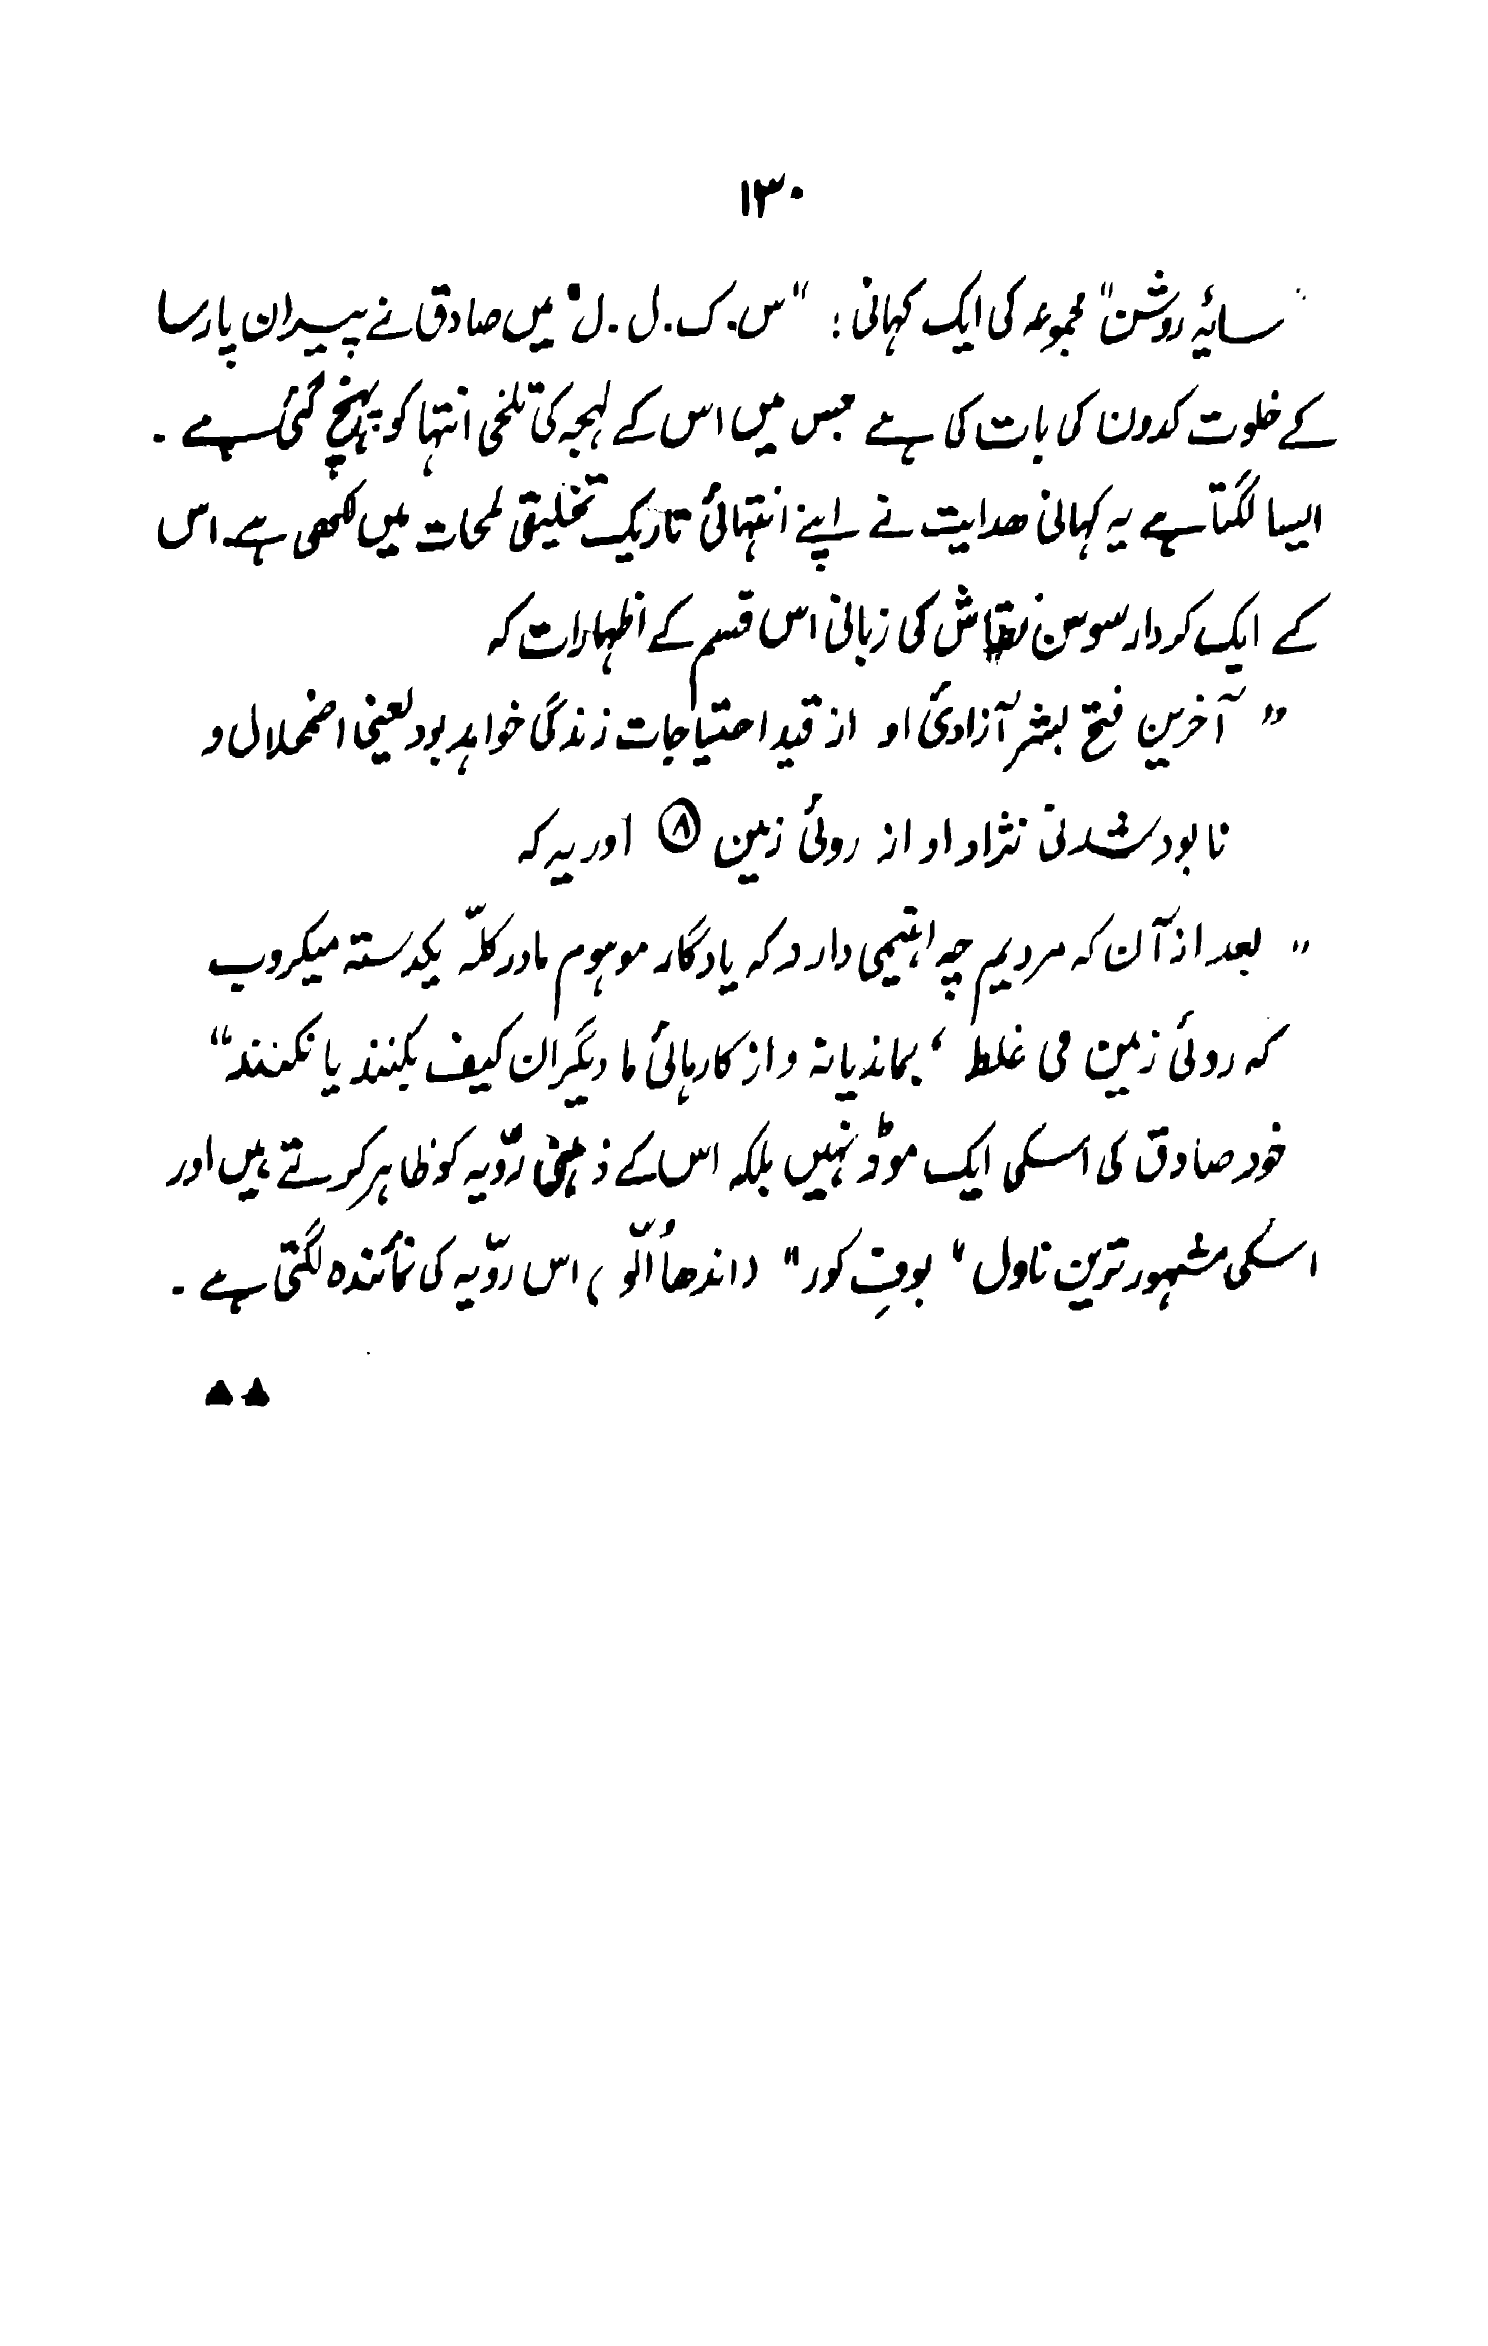 ۱۳۰
"سائیہ روشن" مجموعہ کی ایک کہانی: "س۔ ک۔ ل۔ ل" میں صادق نے پیران پارسا
کے خلوت کدون کی بات کی ہے جس میں اس کے لہجہ کی تلخی انتہا کو پہنچ گئی ہے۔
ایسا لگتا ہے یہ کہانی ھدایت نے اپنے انتہائی تاریک تخلیقی لمحات میں لکھی ہے۔ اس
کے ایک کردار سوسن نقاش کی زبانی اس قسم کے اظہارات کہ
" آخرین فتح بشر آزادئ او از قید احتیاجات زندگی خواہد بود یعنی اضمحلال و
نابود شدنی نژاد او از روئی زمین ⑧ اور یہ کہ
" بعد از آن کہ مردیم چہ اہتیمی دارد کہ یادگار موہوم مادر کلّہ یکدستہ میکروب
کہ روئی زمین می غلط ، بماند یا نہ و از کارہائی ما دیگران کیف بکنند یا نکنند"
خود صادق کی اسکی ایک موڈ نہیں بلکہ اس کے ذہنی روّیہ کو ظاہر کرتے ہیں اور
اسکی مشہور ترین ناول "بوفِ کور" (اندھا اُلّو) اس روّیہ کی نمائندہ لگتی ہے۔